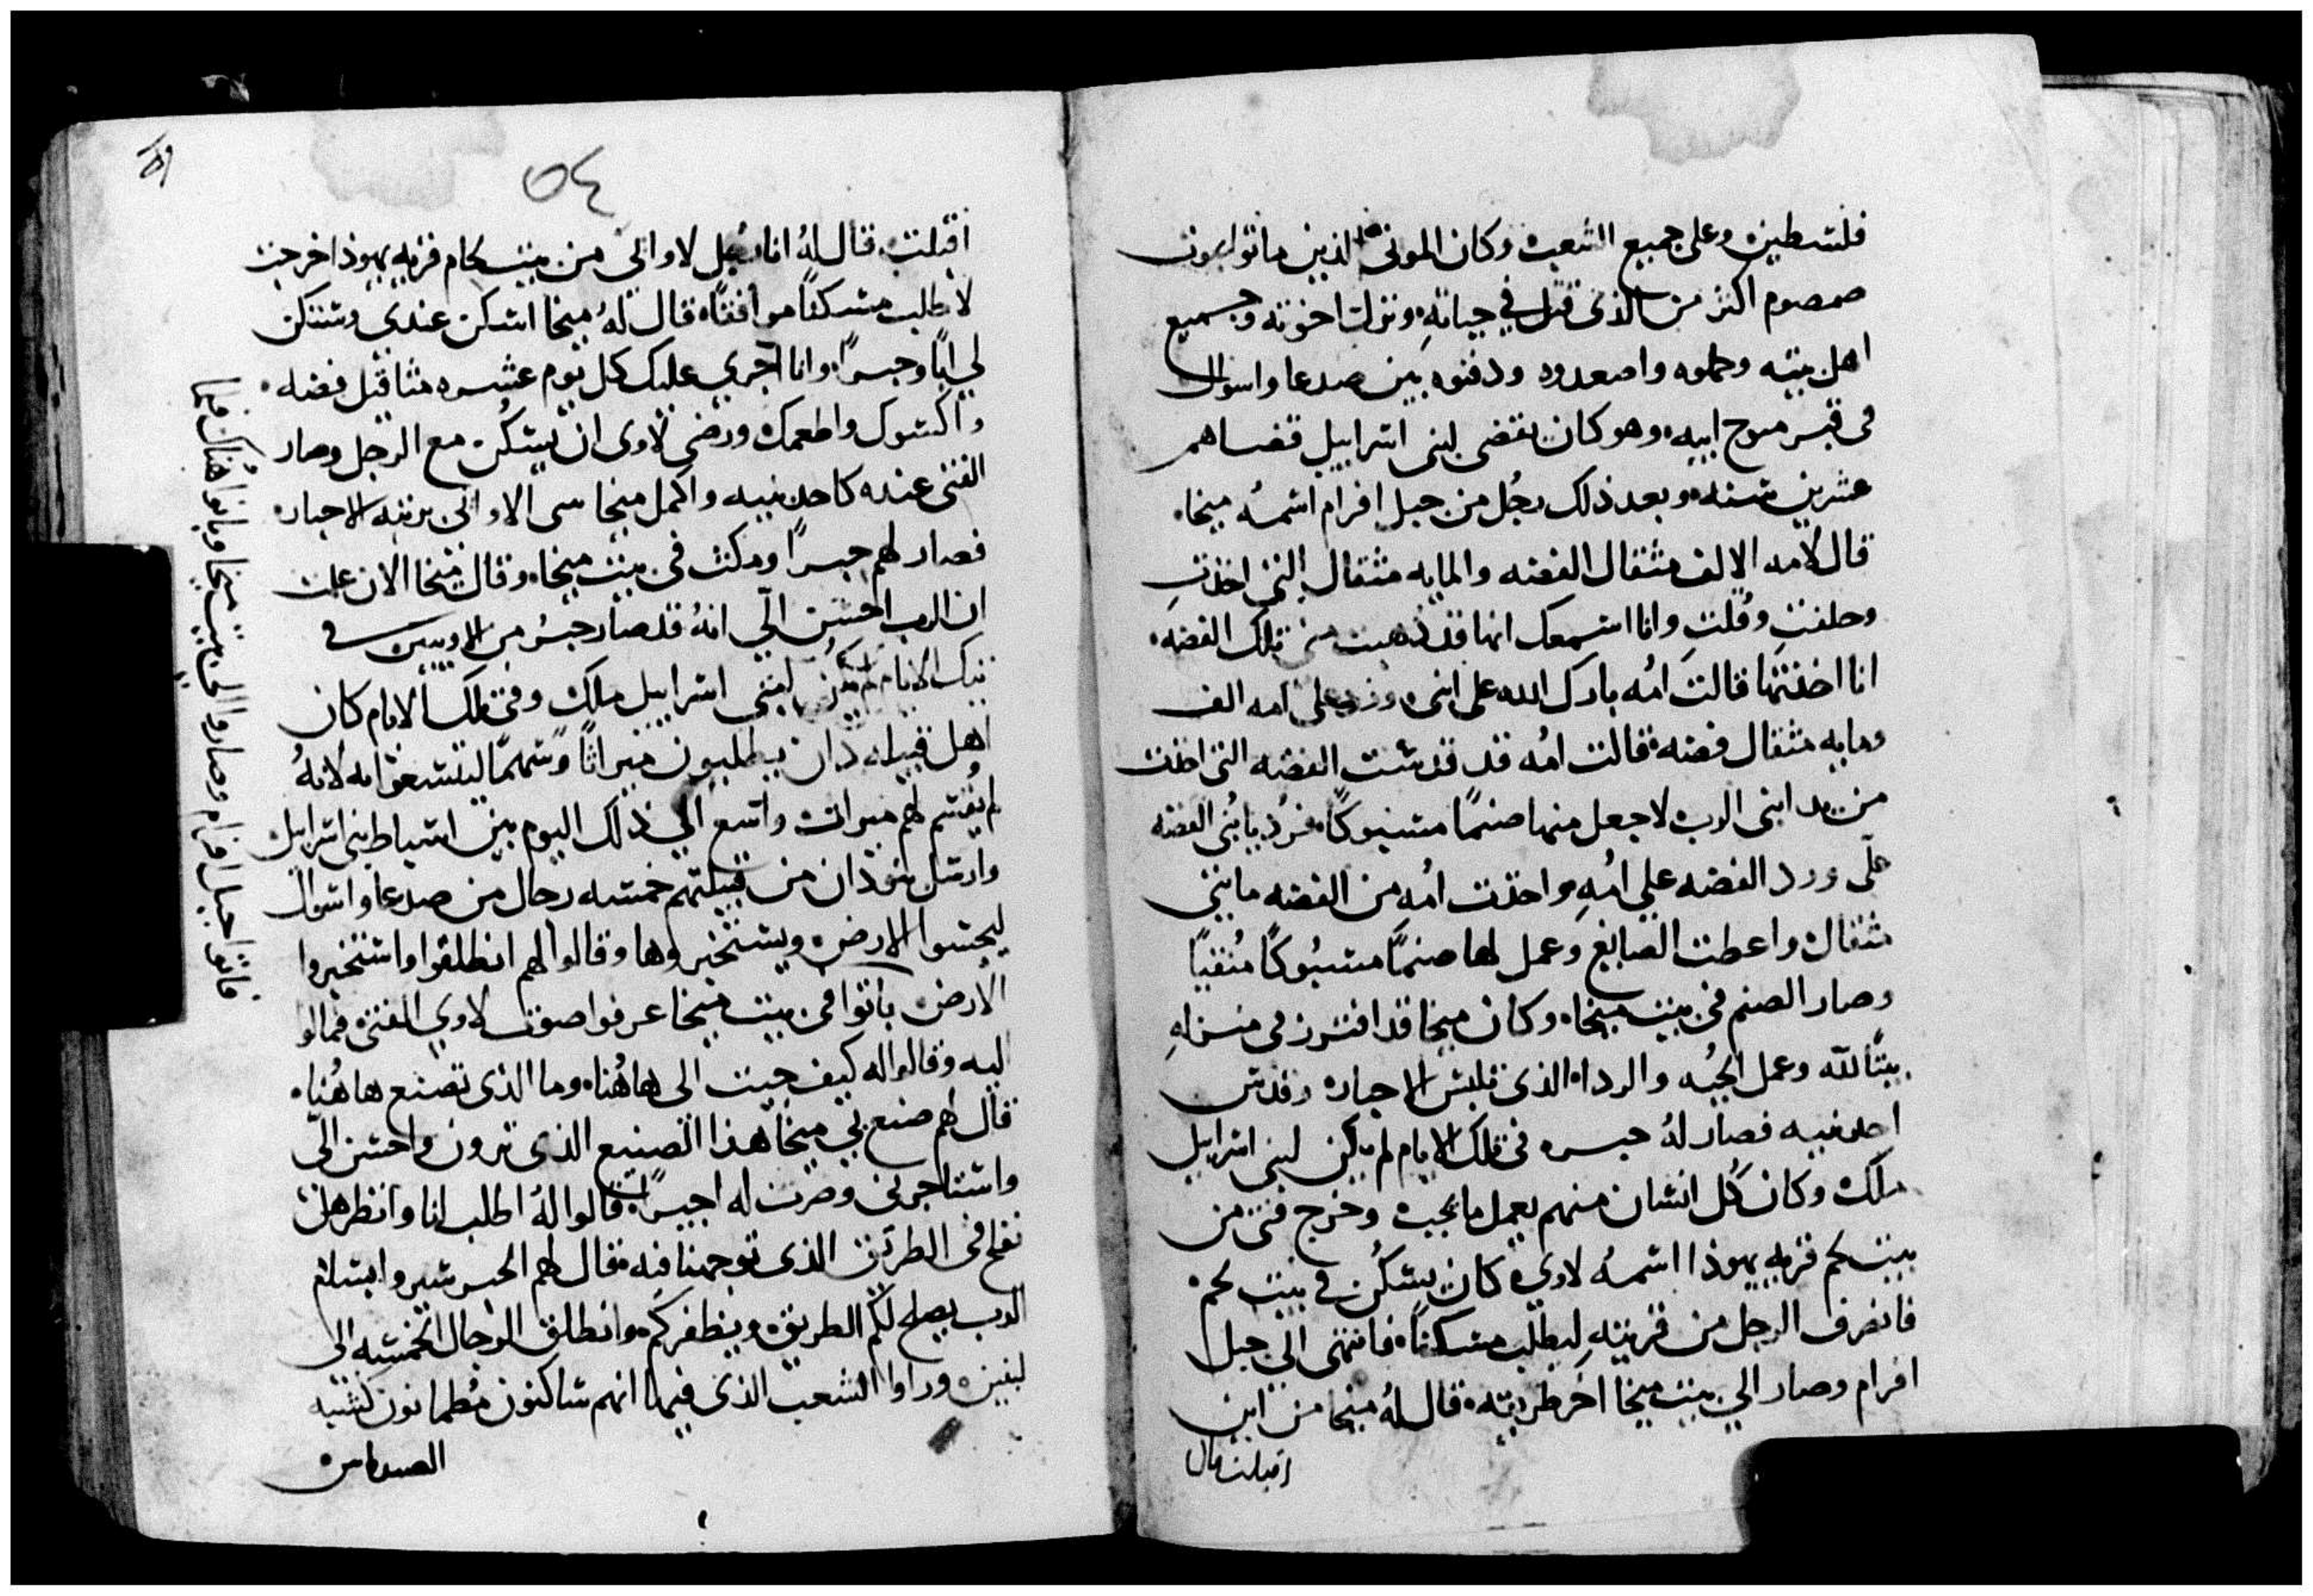 فلسطين وعلى جميع الشعب وكان الموتى الذين ماتوا بموت
صمصوم اكثر من الذى قتل في حياته ونزلت اخوته وجميع
اهل بيته وحملوه واصعدوه ودفنوه بين صدعا واسوال
فى قبر منوح ابيه وهو كان يقضى لبنى اسراييل قضاهم
عشرين سنه وبعد ذلك رجُل من جبل افرام اسمُه ميخا
قال لامه الالف مثقال الفضه والمايه مثقال التى اخذتِ
وحلفتِ وقُلتِ وانا اسمعك انها قد ذهبت منى تلك الفضه
انا اخذتها قالت امُه بارك الله على ابنى ورد على امه الف
ومايه مثقال فضه قالت امُه قد قدست الفضه التى اخذت
من يد ابنى الرب لاجعل منها صنمًا مسبوكًا فرُد يابُنى الفضه
علّى ورد الفضه على امُهِ واخذت امُه من الفضه مايتى
مثقال واعطت الصايغ وعمل لها صنمًا مسبُوكًا مُنقيًا
وصار الصنم فى بيت ميخا وكان ميخا قد افترز فى منزلهِ
بيتًا لله وعمل الجُبه والردا الذى تلبس الاحبار وقدس
احد بنيه فصار لهُ حبر فى تلك الايام لم يكن لبنى اسراييل
ملك وكان كُل انسان منهم يعمل مايحب وخرج فتى من
بيت لحم قريه يهوذا اسمُه لاوى كان يسكُن في بيت لحم
فانصرف الرجل من قريتهِ ليطلب مسكنًا فانتهى الى جبل
افرام وصار الى بيت ميخا اخر طريقه قال لهُ ميخا من اين
اقبلت قال
٥٤
اقبلت قال لهُ انا رجُل لاوانى من بيت لحام قريه يهوذا خرجت
لاطلب مسكنًا موافقًا قال لهُ ميخا اسكن عندى وتكن
لى ابًا وحبرًا وانا اجرى عليك كل يوم عشره مثاقيل فضه
واكسوك واطعمك ورضى لاوى ان يسكُن مع الرجل وصار
الفتى عنده كاحد بنيه واكمل ميخا الاوانى برتبه الاحبار
فصار لهم حبرًا ومكث فى بيت ميخا وقال ميخا الان علمت
ان الرب احسن الّى انهُ قد صار حبرُ من الاويين في
تلك الايام لم يكُن لبنى اسراييل ملك وفى تلك الايام كان
اهل قبيله دان يطلبون ميراثًا وسهمًا ليتسعوا به لانهُ
لم يُقسم لهم ميراث واسع الي ذلك اليوم بين اسباط بنى اسراييل
وارسل بنو دان من قبيلتهم خمسه رجال من صدعا واسوال
ليجسوا الارض ويستخبروها وقالوا لهم انطلقوا واستخبروا
الارض باتوا فى بيت ميخا عرفوا صوت لاوي الفتى فمالوا
اليه وقالوا له كيف جيت الى هاهُنا وما الذى تصنع هاهُنا
قال لهم صنع بى ميخا هذا الصنيع الذى ترون واحسن الّى
واستاجرنى وصرت له اجيرًا قالوا لهُ اطلب لنا وانظر هل
نفلح فى الطريق الذى توجهنا فيه قال لهم الحبر سيروا بسلام
الرب يصلح لكم الطريق ويظفركم وانطلق الرجال الخمسه الى
ليفين وراوا الشعب الذى فيها انهم ساكنون مُطمانون كشبه
الصيدانين
فاتوا جبل افرام وصاروا الى بيت ميخا وباتوا هُناك فيما